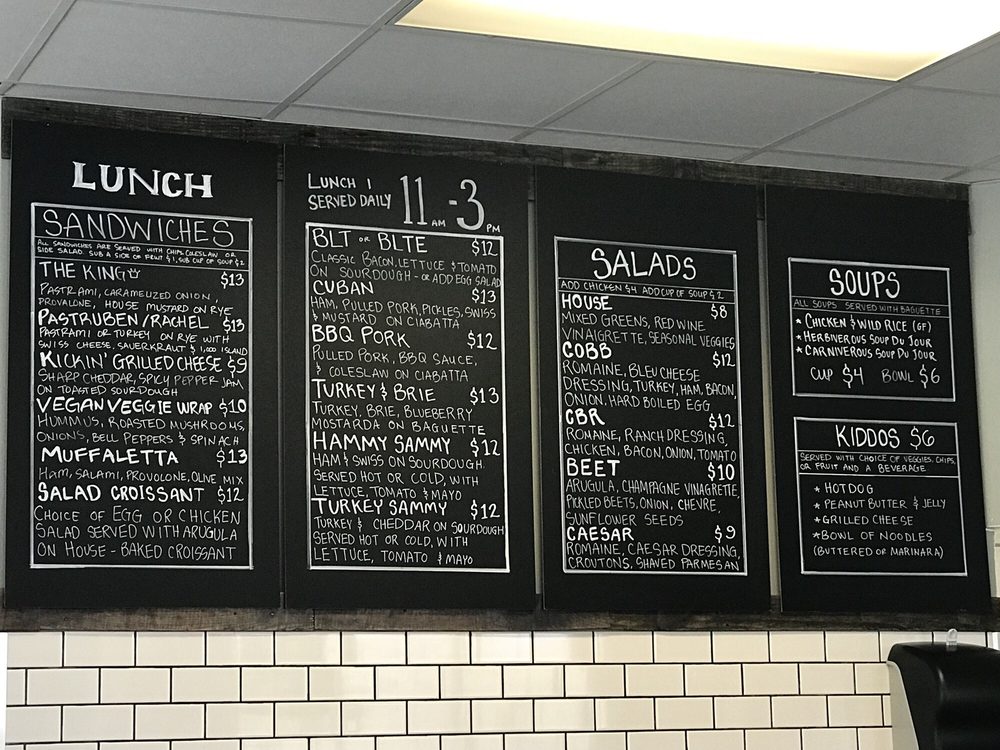 LUNCH
SANDWICHES
ALL SANDWICHES ARE SERVED WITH CHIPS, COLESLAW OR
SIDE SALAD. SUB A SIDE OF FRUIT $1, SUB CUP OF SOUP $2
THE KING $13
PASTRAMI, CARAMELIZED ONION,
PROVALONE, HOUSE MUSTARD ON RYE
PASTRUBEN/RACHEL $13
PASTRAMI OR TURKEY ON RYE WITH
SWISS CHEESE, SAUERKRAUT & 1,000 ISLAND
KICKIN' GRILLED CHEESE $9
SHARP CHEDDAR, SPICY PEPPER JAM
ON TOASTED SOURDOUGH
VEGAN VEGGIE WRAP $10
HUMMUS, ROASTED MUSHROOMS,
ONIONS, BELL PEPPERS & SPINACH
MUFFALETTA $13
HAM, SALAMI, PROVOLONE, OLIVE MIX
SALAD CROISSANT $12
CHOICE OF EGG OR CHICKEN
SALAD SERVED WITH ARUGULA
ON HOUSE-BAKED CROISSANT
LUNCH |
SERVED DAILY 11 AM -3 PM
BLT OR BLTE $12
CLASSIC BACON, LETTUCE & TOMATO
ON SOURDOUGH - OR ADD EGG SALAD
CUBAN $13
HAM, PULLED PORK, PICKLES, SWISS
& MUSTARD ON CIABATTA
BBQ PORK $12
PULLED PORK, BBQ SAUCE,
& COLESLAW ON CIABATTA
TURKEY & BRIE $13
TURKEY, BRIE, BLUEBERRY
MOSTARDA ON BAGUETTE
HAMMY SAMMY $12
HAM & SWISS ON SOURDOUGH
SERVED HOT OR COLD, WITH
LETTUCE, TOMATO & MAYO
TURKEY SAMMY $12
TURKEY & CHEDDAR ON SOURDOUGH
SERVED HOT OR COLD, WITH
LETTUCE, TOMATO & MAYO
SALADS
ADD CHICKEN $4 ADD CUP OF SOUP $2
HOUSE $8
MIXED GREENS, RED WINE
VINAIGRETTE, SEASONAL VEGGIES
COBB $12
ROMAINE, BLEU CHEESE
DRESSING, TURKEY, HAM, BACON,
ONION, HARD BOILED EGG
CBR $12
ROMAINE, RANCH DRESSING,
CHICKEN, BACON, ONION, TOMATO
BEET $10
ARUGULA, CHAMPAGNE VINAGRETTE,
PICKLED BEETS, ONION, CHEVRE,
SUNFLOWER SEEDS
CAESAR $9
ROMAINE, CAESAR DRESSING,
CROUTONS, SHAVED PARMESAN
SOUPS
ALL SOUPS SERVED WITH BAGUETTE
* CHICKEN & WILD RICE (GF)
* HERBINEROUS SOUP DU JOUR
* CARNIVEROUS SOUP DU JOUR
CUP $4 BOWL $6
KIDDOS $6
SERVED WITH CHOICE OF VEGGIES, CHIPS,
OR FRUIT AND A BEVERAGE.
* HOTDOG
* PEANUT BUTTER & JELLY
* GRILLED CHEESE
* BOWL OF NOODLES
(BUTTERED OF MARINARA)